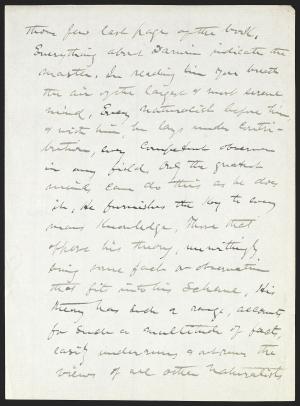 those few last page of the book.
Everything about Darwin indicate the
master. In reading him you breath
the air of the largest & most serene
mind. Every naturalist before him
& with him, he lays under contri-
bution, every competent observer
in any field. Only the greatest
minds can do this as he does
it. He furnishes the key to every
mans knowledge. Those that
oppose his theory, unwittingly
bring some fact or observation
that fit into his scheme. His
theory has such a range, accounts
for such a multitude of facts,
easily underruns & outruns the
views of all other naturalists